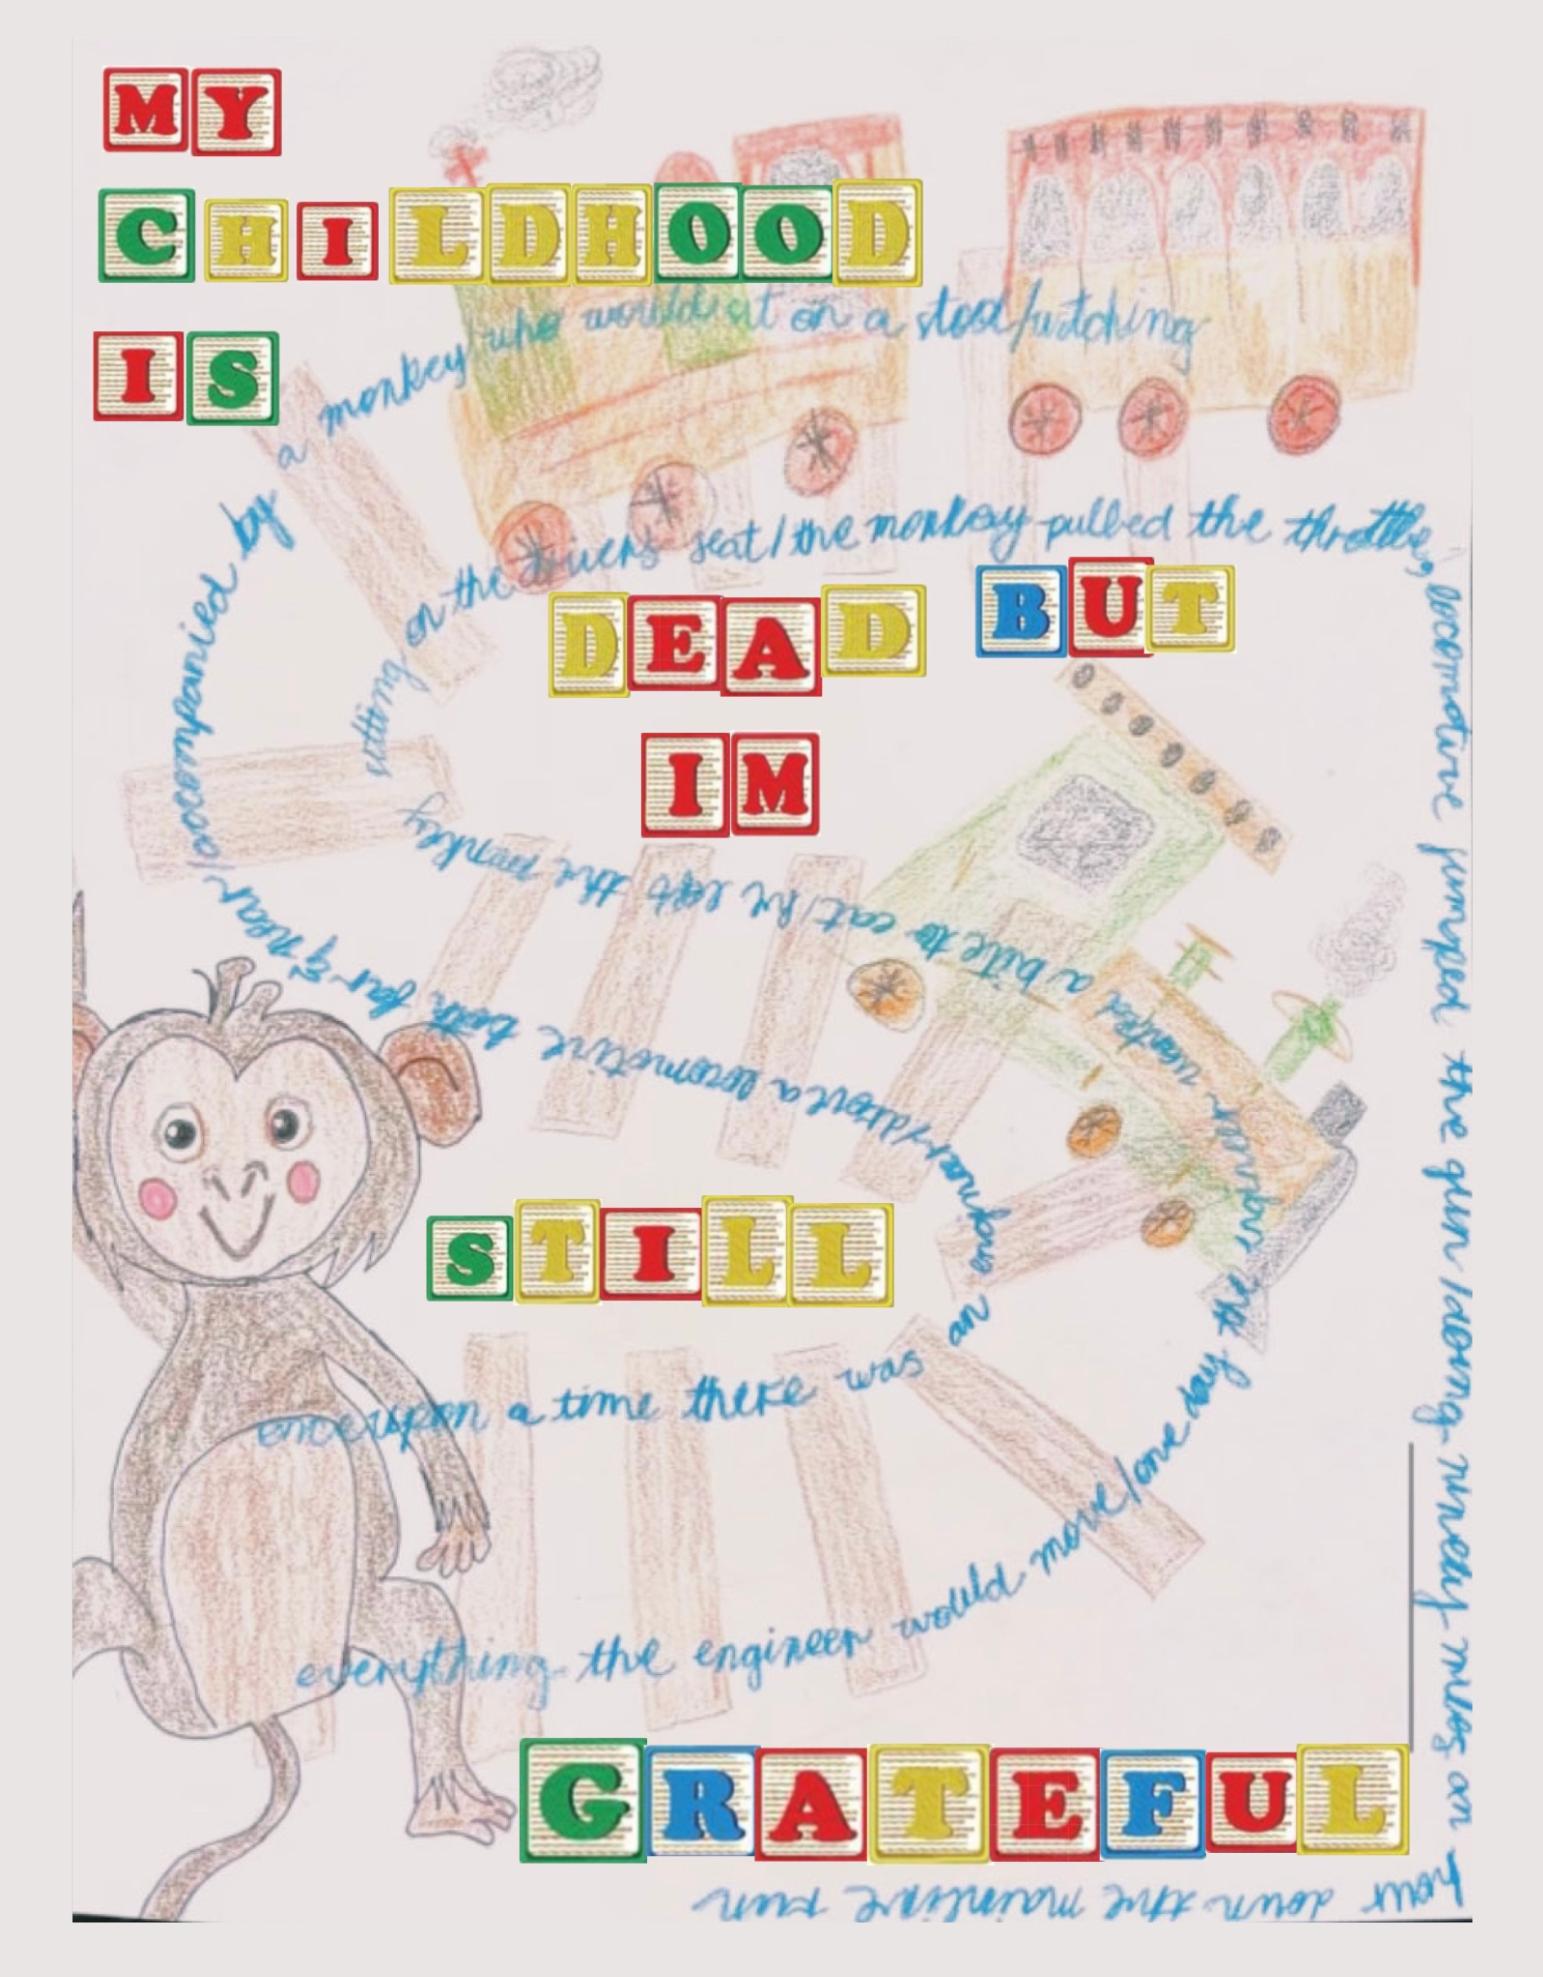 MY
CHILDHOOD
IS
DEAD BUT
IM
STILL
GRATEFUL
once upon a time there was an
/drove a locomotive both far & near/accompanied by a monkey/who would sit on a stool/watching
everything the engineer would move/one day the wanted a bite to eat/he left the monkey
sitting on the drivers seat/the monkey pulled the throttle, locomotive jumped the gun/doing ninety miles an hour down the mainline run